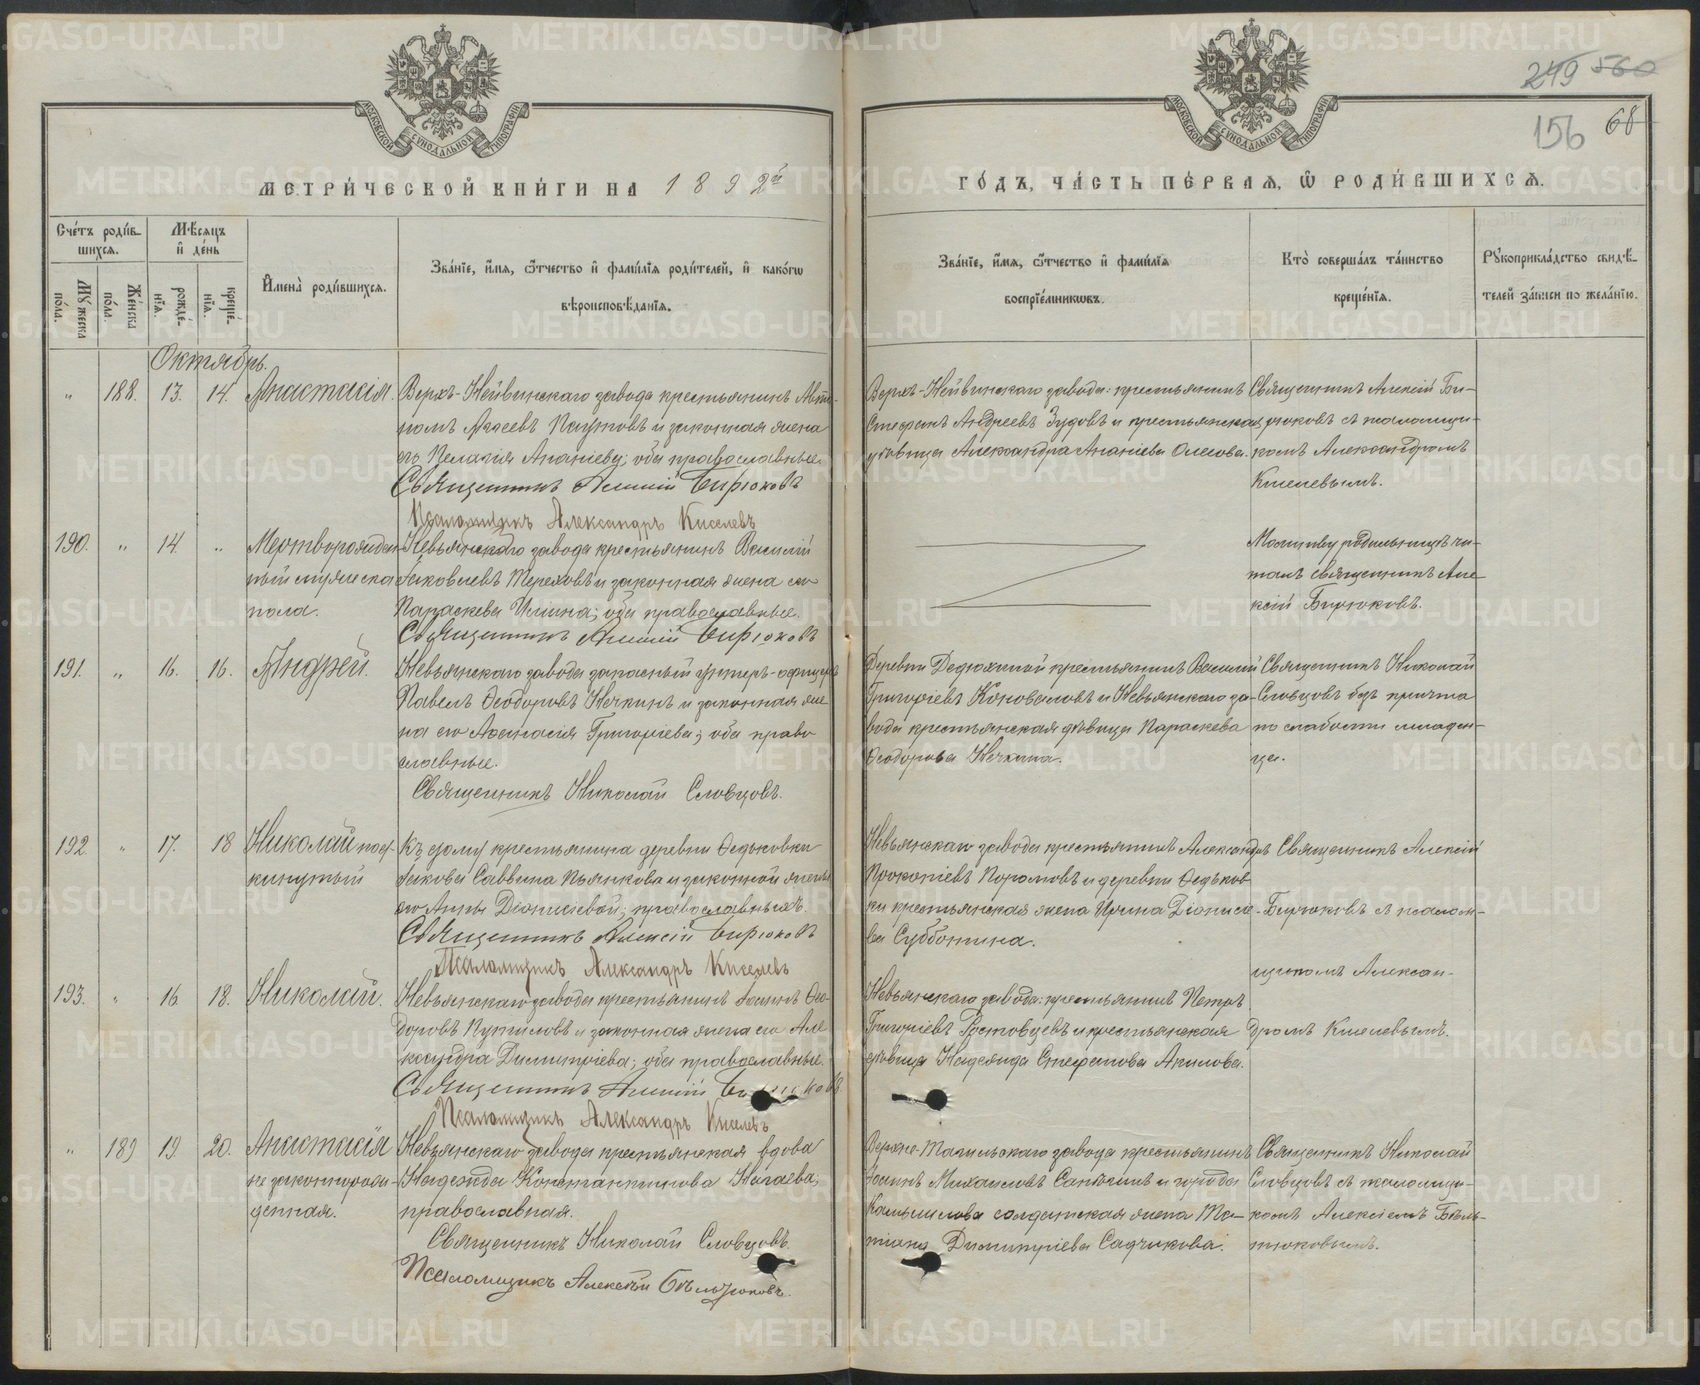 МЕТРИ́ЧЕСКОЙ КНИ́ГИ НА 1892й
ГО́ДЪ, ЧА́СТЬ ПЕ́РВАЯ, Ѡ РОДИ́ВШИХСЯ.
249 560
156 68
Сче́тъ роди́в-
шихся.
Мѣ́сяцъ
и҆ де́нь
Му́жеска
по́ла.
Же́нска
по́ла.
рожде́-
нїя.
креще́-
нїя.
И҆мена̀ роди́вшихся.
Зва́нїе, и҆́мя, ѻ҆́тчество и҆ фами́лїя роди́телей, и҆ како́гѡ
вѣроисповѣ́данїя.
Зва́нїе, и҆́мя, ѻ҆́тчество и҆ фами́лїя
воспрїе́мниковъ.
Кто̀ соверша́лъ та́инство
креще́нїя.
Рꙋкоприкла́дство свидѣ́-
телей за́писи по жела́нїю.
Октябрь.
" 188. 13. 14. Анастасія.
Верхъ-Нейвинскаго завода крестьянинъ
и законная жена
его Пелагія Ананіева; оба православные.
Священникъ Алексій Бирюковъ
Псаломщикъ Александръ Киселевъ
Верхъ-Нейвинскаго завода: крестьянинъ
Стефанъ Андреевъ Зудовъ и крестьянская
дѣвица Александра Ананіева
Священникъ Алексій Би-
рюковъ съ псаломщи-
комъ Александромъ
Киселевымъ.
190. " 14. "
Мертворожден-
ный мужеска
пола.
Невьянскаго завода крестьянинъ Василій
Іаковлевъ Тереховъ и законная жена его
Параскева Ильина; оба православные.
Священникъ Алексій Бирюковъ
Молитву родильницѣ чи-
талъ священникъ Але-
ксій Бирюковъ.
191. " 16. 16. Андрей.
Невьянскаго завода запасный унтеръ-офицеръ
Павелъ Ѳеодоровъ Нечкинъ и законная же-
на его Аѳанасія Григоріева; оба право-
славные.
Священникъ Николай Словцовъ.
Деревни Дедюхиной крестьянинъ Василій
Григоріевъ Коноваловъ и Невьянскаго за-
вода крестьянская дѣвица Параскева
Ѳеодорова Нечкина.
Священникъ Николай
Словцовъ безъ причта
по слабости младен-
ца.
192 " 17. 18
Николай под-
кинутый
Къ дому крестьянина деревни Ѳедьковки
Іакова Саввина Пьянкова и законной жены
его Анны Діонисіевой; православныхъ.
Священникъ Алексій Бирюковъ
Псаломщикъ Александръ Киселевъ
Невьянскаго завода крестьянинъ Александръ
Прокопіевъ и деревни Ѳедьков-
ки крестьянская жена Ирина Діонисіе-
ва Субботина.
Священникъ Алексій
Бирюковъ съ псалом-
щикомъ Алексан-
дромъ Киселевымъ.
193. " 16. 18. Николай.
Невьянскаго завода крестьянинъ Іоаннъ Ѳео-
доровъ и законная жена его Але-
ксандра Димитріева; оба православные.
Священникъ Алексій Бирюковъ
Псаломщикъ Александръ Киселевъ
Невьянскаго завода: крестьянинъ Петръ
Григоріевъ Ростовцевъ и крестьянская
дѣвица Надежда Стефанова Акилова.
" 189 19. 20.
Анастасія
незаконнорож-
денная.
Невьянскаго завода крестьянская вдова
Надежда Константинова Нагаева;
православная.
Священникъ Николай Словцовъ.
Псаломщикъ Алексѣй Бѣльтюковъ.
Верхне-Тагильскаго завода крестьянинъ
Іоаннъ Михаиловъ и города
Камышлова солдатская жена Та-
тіана Димитріева Садчикова.
Священникъ Николай
Словцовъ съ псаломщи-
комъ Алексіемъ Бѣль-
тюковымъ.
METRIKI.GASO-URAL.RU